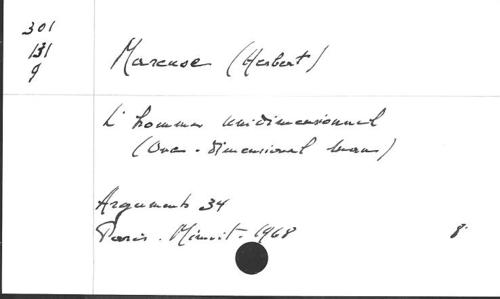 301
131
9
Marcuse (Herbert)
L'homme unidimensionnel
(One-dimensional man)
Arguments 34
Paris. Minuit. 1968 8°